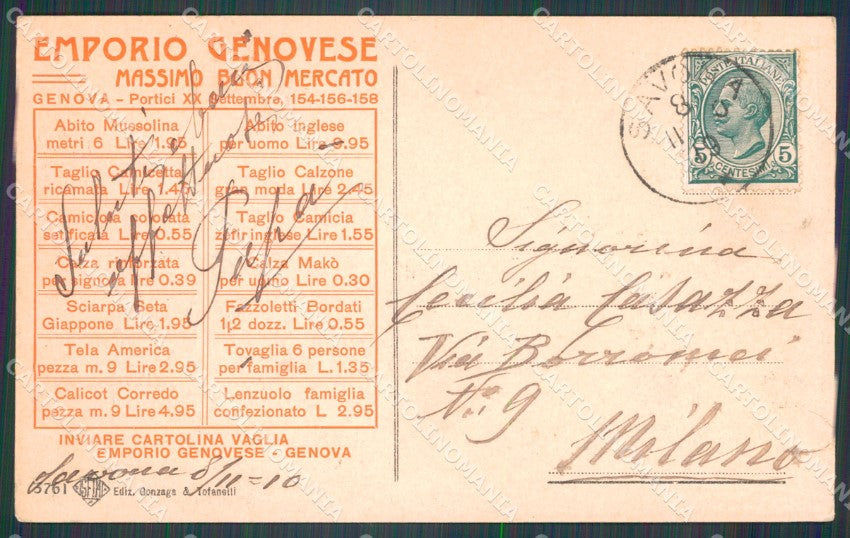 EMPORIO GENOVESE
MASSIMO BUON MERCATO
GENOVA - Portici XX Settembre, 154-156-158
Abito Mussolina
metri 6 Lire 1.95
Abito inglese
per uomo Lire .95
Taglio Camicetta
ricamata Lire 1.45
Taglio Calzone
gran moda Lire 2.45
Camiciola
Lire 0.55
Taglio Camicia
zefir inglese Lire 1.55
Calza rinforzata
per signora Lire 0.39
Calza Makò
per uomo Lire 0.30
Sciarpa Seta
Giappone Lire 1.95
Fazzoletti Bordati
1|2 dozz. Lire 0.55
Tela America
pezza m. 9 Lire 2.95
Tovaglia 6 persone
per famiglia L. 1.35
Calicot Corredo
pezza m. 9 Lire 4.95
Lenzuolo famiglia
confezionato L 2.95
INVIARE CARTOLINA VAGLIA
EMPORIO GENOVESE - GENOVA
Saluti e baci
Papà
Savona 8/11-10
5761
Ediz. Gonzaga & Tofanelli
POSTE ITALIANE
5 5
CENTESIMI
SAVONA
8
Signorina
Cecilia Casazza
Via Borromei
N.° 9
Milano
CARTOLINOMANIA